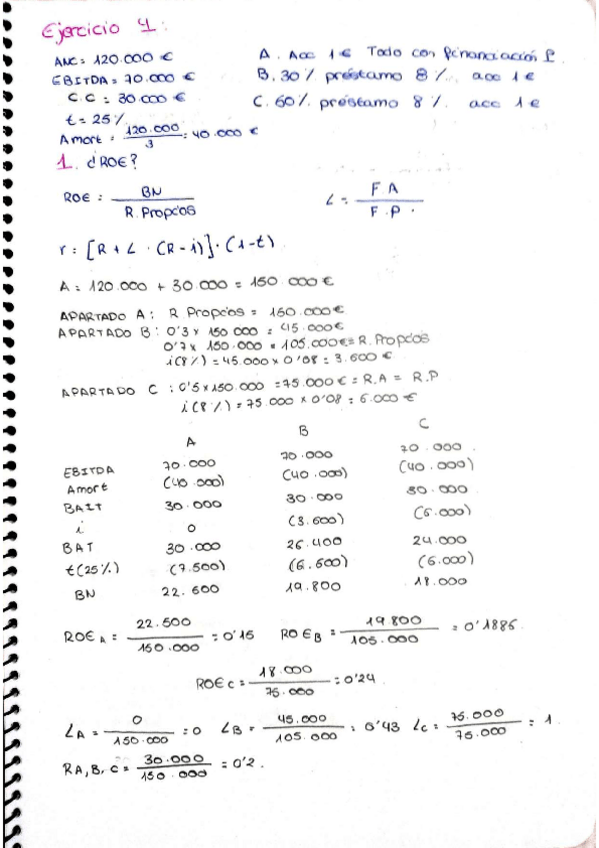 Ejercicio 1:
ANC = 120.000 €
EBITDA = 70.000 €
C.C = 30.000 €
t = 25%
Amort = 120.000 / 3 = 40.000 €
A. Acc 1€ Todo con financiación P.
B. 30% préstamo 8%. acc 1€
C. 60% préstamo 8%. acc 1€
1. ¿ROE?
ROE = BN / R. Propios
L = F.A / F.P.
r = [R + L · (R - i)] · (1-t)
A = 120.000 + 30.000 = 150.000 €
APARTADO A: R Propios = 150.000 €
APARTADO B: 0'3 x 150 000 = 45.000 €
0'7 x 150.000 = 105.000 € = R. Propios
i(8%) = 45.000 x 0'08 = 3.600 €
APARTADO C: 0'5 x 150.000 = 75.000 € = R.A = R.P
i(8%) = 75.000 x 0'08 = 6.000 €
A B C
EBITDA 70.000 70.000 70.000
Amort (40.000) (40.000) (40.000)
BAIT 30.000 30.000 30.000
i 0 (3.600) (6.000)
BAT 30.000 26.400 24.000
t(25%) (7.500) (6.600) (6.000)
BN 22.500 19.800 18.000
ROE A = 22.500 / 150.000 = 0'15 ROE B = 19.800 / 105.000 = 0'1886
ROE C = 18.000 / 75.000 = 0'24
LA = 0 / 150.000 = 0 LB = 45.000 / 105.000 = 0'43 LC = 75.000 / 75.000 = 1.
RA, B, C = 30.000 / 150.000 = 0'2.